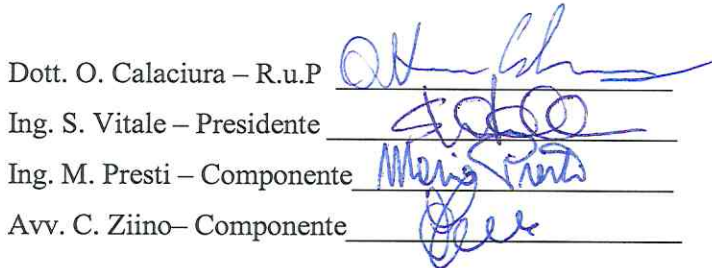 Dott. O. Calaciura – R.u.P
Ing. S. Vitale – Presidente
Ing. M. Presti – Componente Mario Presti
Avv. C. Ziino– Componente